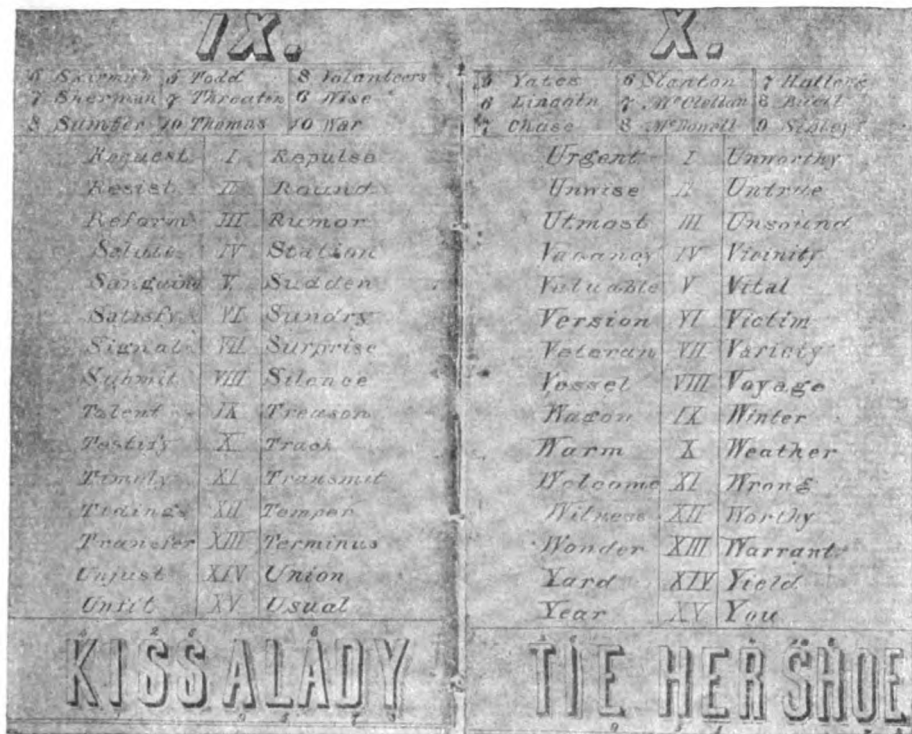 IX.
5 Skirmish 5 Todd 8 Volunteers
7 Sherman 7 Threaten 6 Wise
8 Sumter 10 Thomas 10 War
Request I Repulse
Resist II Round
Reform III Rumor
IV Station
Sanguine V Sudden
Satisfy VI Sundry
Signal VII Surprise
Submit VIII Silence
Talent IX Treason
Testify X Track
Timely XI Transmit
Tidings XII Temper
Transfer XIII Terminus
Unjust XIV Union
Unfit XV Usual
KISS A LADY
X.
5 Yates 6 Stanton 7 Halleck
6 Lincoln 7 McClellan 8 Buell
7 Chase 8 McDowell 9 Sibley
Urgent I Unworthy
Unwise II Untrue
Utmost III Unsound
Vacancy IV Vicinity
Valuable V Vital
Version VI Victim
Veteran VII Variety
Vessel VIII Voyage
Wagon IX Winter
Warm X Weather
Welcome XI Wrong
Witness XII Worthy
Wonder XIII Warrant
Yard XIV Yield
Year XV You
TIE HER SHOE